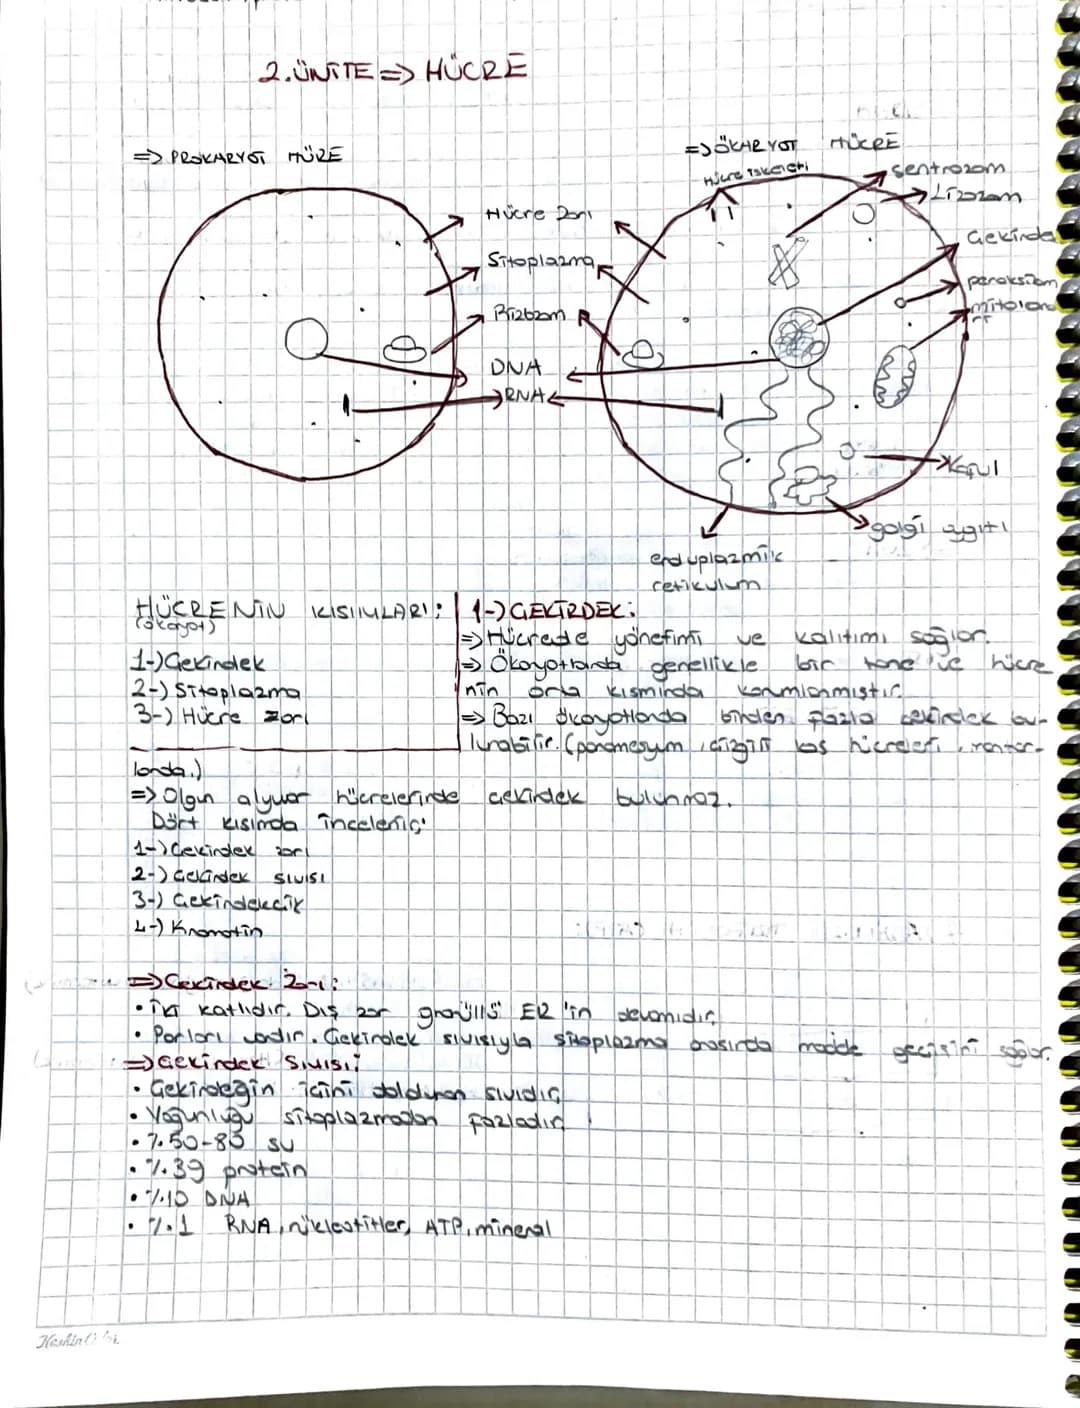 2.ÜNİTE => HÜCRE
=> PROKARYOT HÜRE
=> ÖKARYOT HÜCRE
Hücre iskeleti
Sentrozom
Lizozom
Hücre Zarı
Gekirdek
Sitoplazma
peroksizom
Ribozom
mitokondri
DNA
RNA
Koful
golgi aygıtı
enduplazmik
retikulum
HÜCRENİN KISIMLARI:
(ökaryot)
1-) Gekirdek
2-) Sitoplazma
3-) Hücre zarı
1-) GEKİRDEK:
=> Hücrede yönetimi ve kalıtımı sağlar.
=> Ökaryotlarda genellikle bir tane ve hücre
nin orta kısmında konumlanmıştır.
=> Bazı ökaryotlarda birden fazla çekirdek bu-
lunabilir. (paramesyum, çizgili kas hücreleri,
larda.)
=> Olgun alyuvar hücrelerinde çekirdek bulunmaz.
Dört kısımda incelenir.
1-) Çekirdek zarı
2-) Çekirdek sıvısı
3-) Çekirdekcik
4-) Kromatin
=> Çekirdek Zarı:
• İki katlıdır. Dış zar granüllü ER'in devamıdır.
• Porları vardır. Çekirdek sıvısıyla sitoplazma arasırda madde geçişini sağlar.
=> Çekirdek Sıvısı:
• Çekirdeğin içini dolduran sıvıdır.
• Yoğunluğu sitoplazmadan fazladır.
• %50-80 su
• %39 protein
• %10 DNA
• %1 RNA, nükleotitler, ATP, mineral
Keskin Color